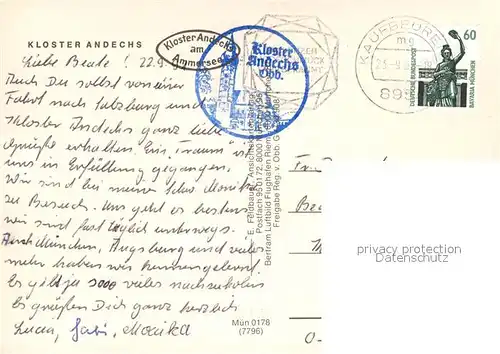 KLOSTER ANDECHS
Kloster Andechs
am
Ammersee
Kloster
Andechs
Obb.
KAUFBEUREN
mg
895
60
DEUTSCHE BUNDESPOST
BAVARIA MÜNCHEN
Liebe Beate! 22.9.
Auch Du sollst von einer
Fahrt nach Salzburg und
Kloster Andechs ganz liebe
Grüße erhalten. Ein Traum ist
uns in Erfüllung gegangen.
Wir sind bei meiner Monika
zu Besuch. Uns geht es bestens
wir sind fast täglich unterwegs.
Auch München, Augsburg und vieles
mehr haben wir kennengelernt.
Es gibt ja sooo vieles nachzuholen
Es grüßen Dich ganz herzlich
Gabi, Monika
E. Feldbauer Ansichtskarten
Postfach 950172, 8000 M
Bertram Luftbild Flughafen Riem
Freigabe Reg. v. Obb. G
Mün 0178
(7796)
privacy protection
Datenschutz